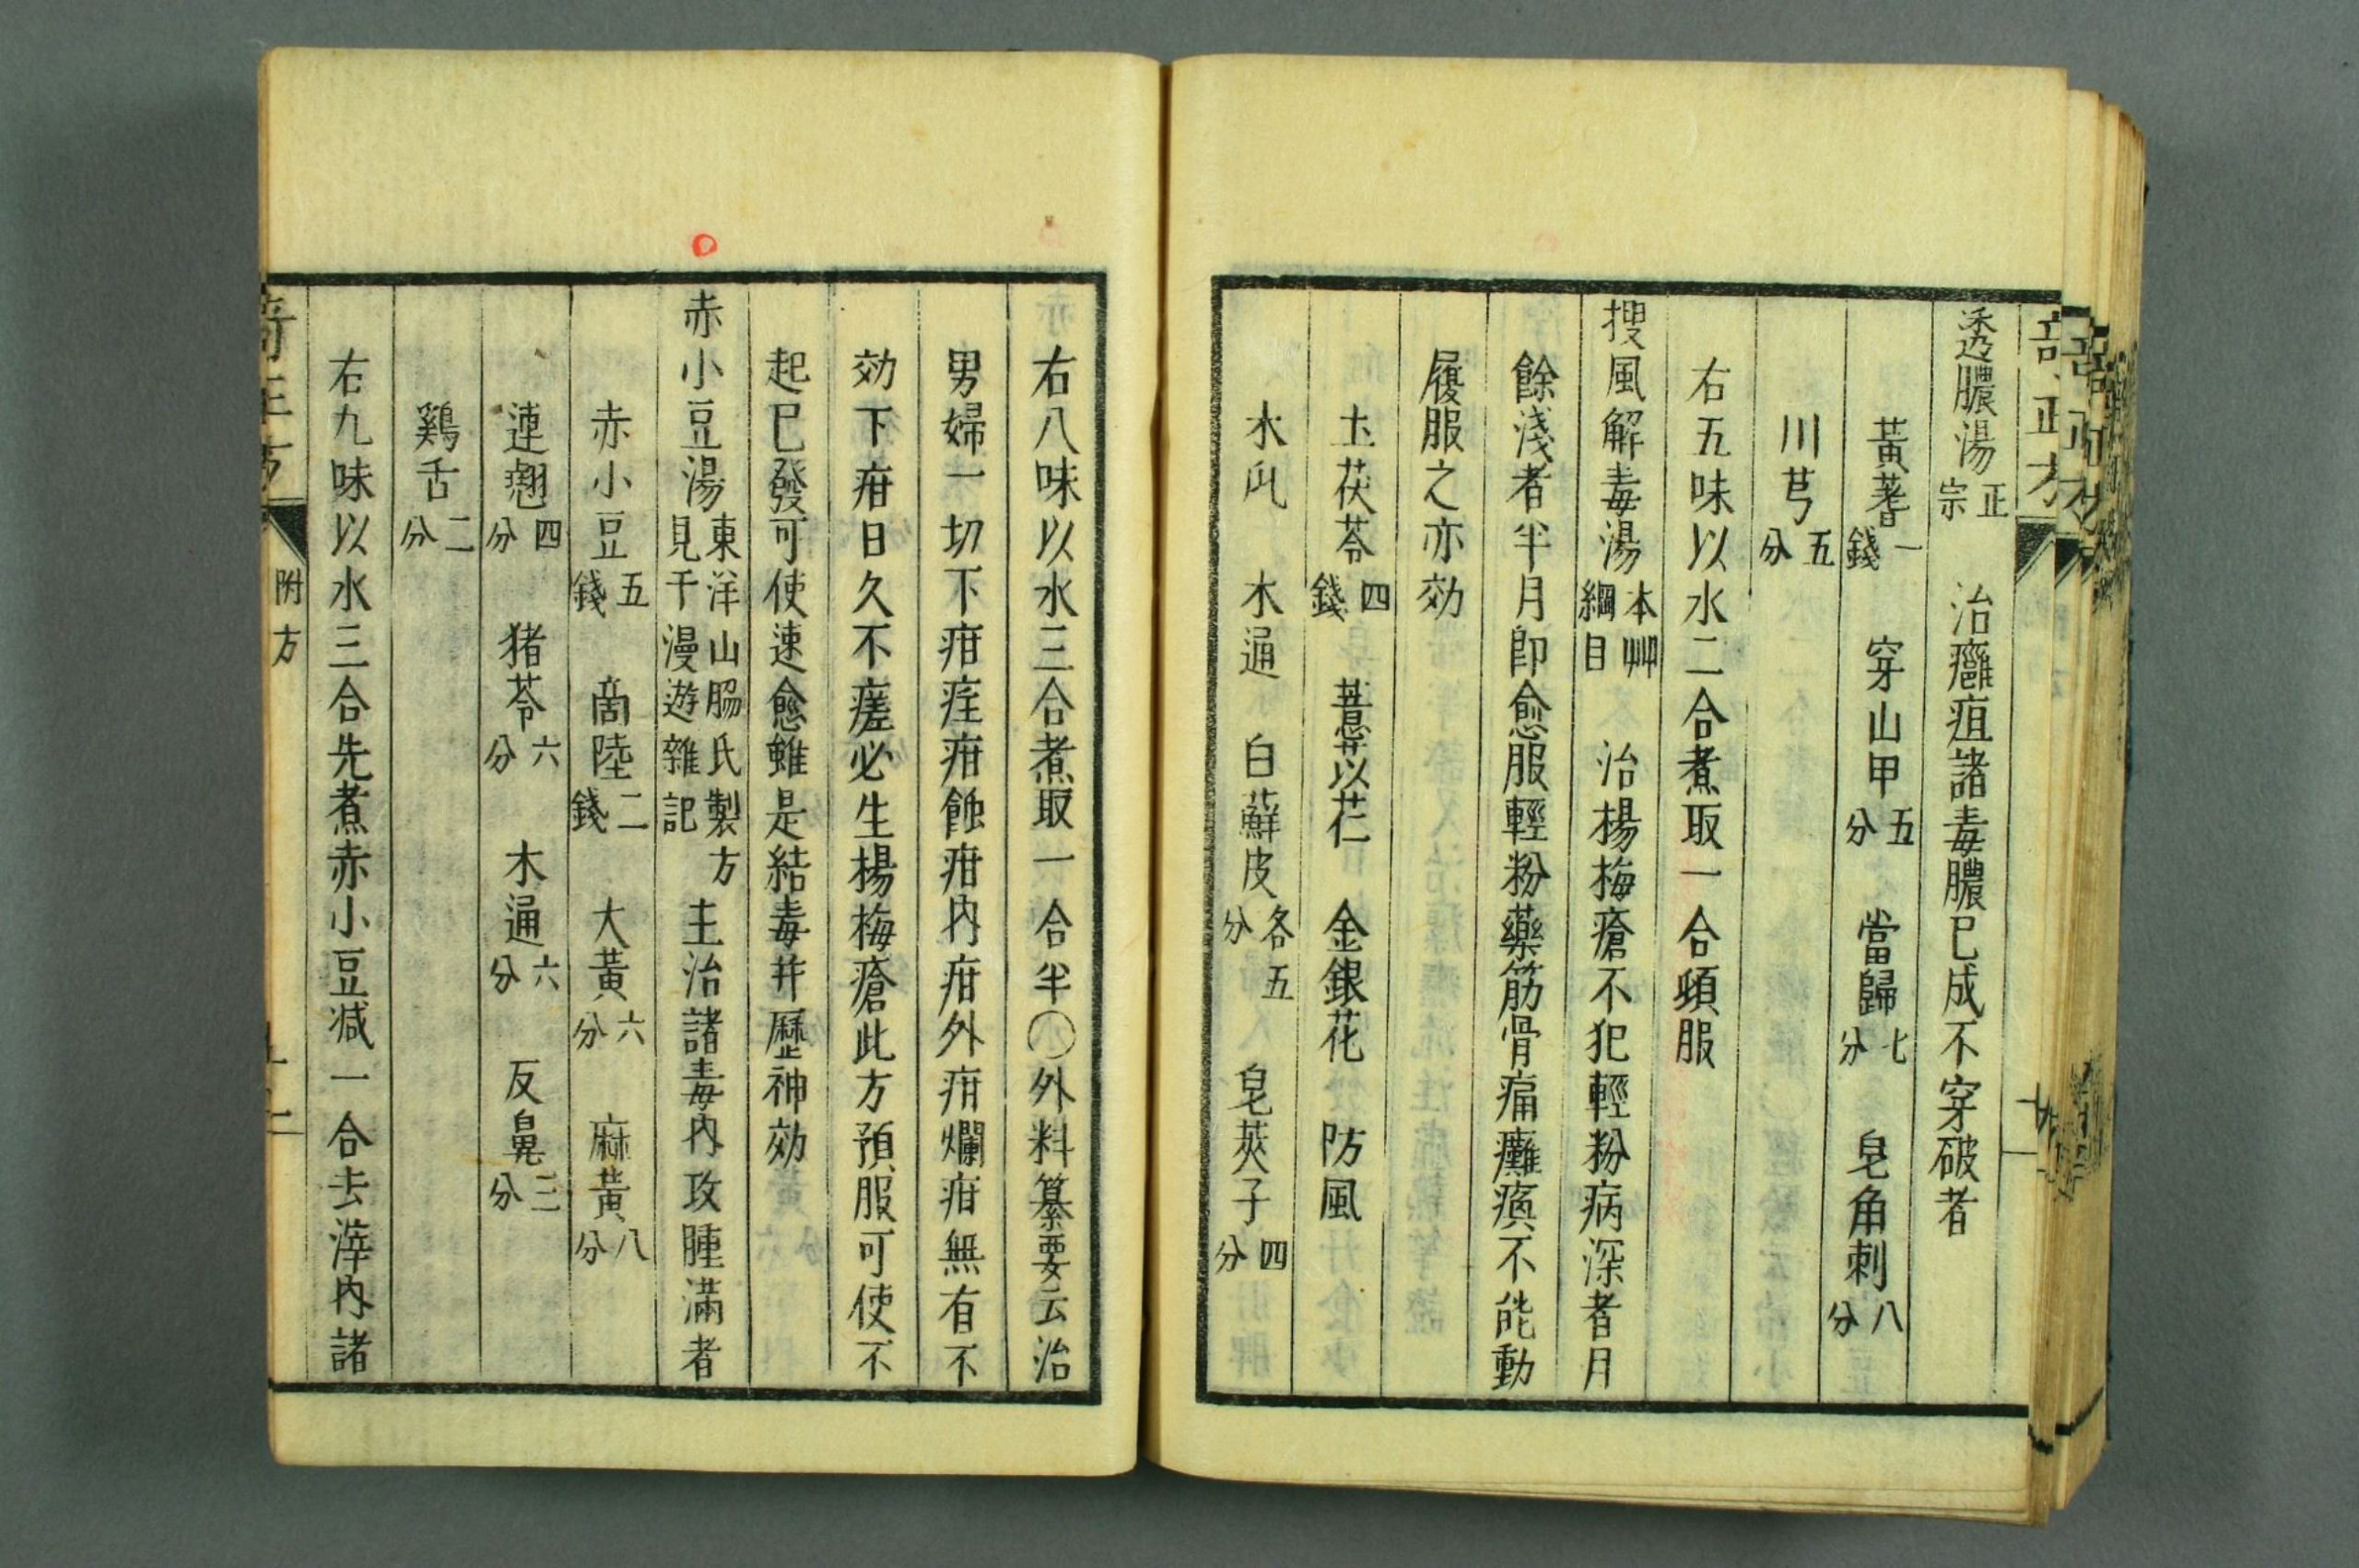 透膿湯 正宗 治癰疽諸毒膿已成不穿破者
黃蓍 一錢 穿山甲 五分 當歸 七分 皂角刺 八分
川芎 五分
右五味以水二合煮取一合頓服
搜風解毒湯 本艸綱目 治楊梅瘡不犯輕粉病深者月
餘淺者半月卽愈服輕粉藥筋骨痛癱瘓不能動
履服之亦効
土茯苓 四錢 薏苡仁 金銀花 防風
木瓜 木通 白蘚皮 各五分 皂莢子 四分
右八味以水三合煮取一合半○外料纂要云治
男婦一切下疳疰疳蝕疳內疳外疳爛疳無有不
効下疳日久不瘥必生楊梅瘡此方預服可使不
起已發可使速愈雖是結毒幷歷神効
赤小豆湯 東洋山脇氏製方見于漫遊雜記 主治諸毒內攻腫滿者
赤小豆 五錢 商陸 二錢 大黃 六分 麻黃 八分
連翹 四分 猪苓 六分 木通 六分 反鼻 三分
鷄舌 二分
右九味以水三合先煮赤小豆减一合去滓內諸
附方